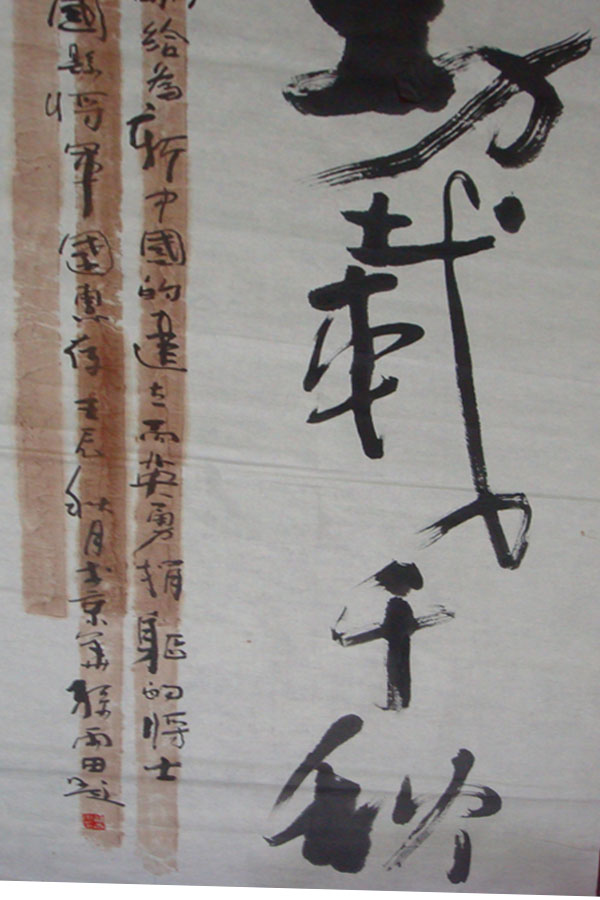 功載千秋
給為新中國的建立而英勇捐躯的将士
國縣将軍團惠存 壬辰秋月於京華 雨田題